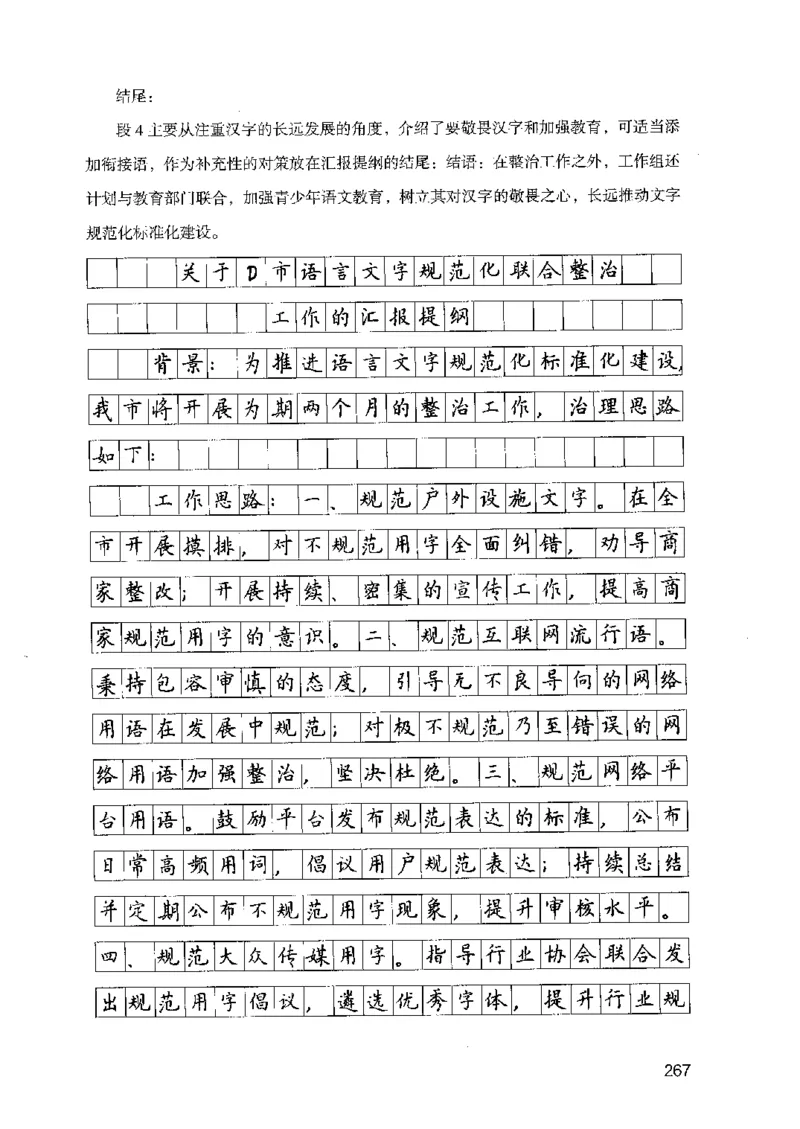 结尾：
段 4 主要从注重汉字的长远发展的角度，介绍了要敬畏汉字和加强教育，可适当添
加衔接语，作为补充性的对策放在汇报提纲的结尾；结语：在整治工作之外，工作组还
计划与教育部门联合，加强青少年语文教育，树立其对汉字的敬畏之心，长远推动文字
规范化标准化建设。
关于D市语言文字规范化联合整治
工作的汇报提纲
背景：为推进语言文字规范化标准化建设，
我市将开展为期两个月的整治工作，治理思路
如下：
工作思路：一、规范户外设施文字。在全
市开展摸排，对不规范用字全面纠错，劝导商
家整改；开展持续、密集的宣传工作，提高商
家规范用字的意识。二、规范互联网流行语。
秉持包容审慎的态度，引导无不良导向的网络
用语在发展中规范；对极不规范乃至错误的网
络用语加强整治，坚决杜绝。三、规范网络平
台用语。鼓励平台发布规范表达的标准，公布
日常高频用词，倡议用户规范表达；持续总结
并定期公布不规范用字现象，提升审核水平。
四、规范大众传媒用字。指导行业协会联合发
出规范用字倡议，遴选优秀字体，提升行业规
267